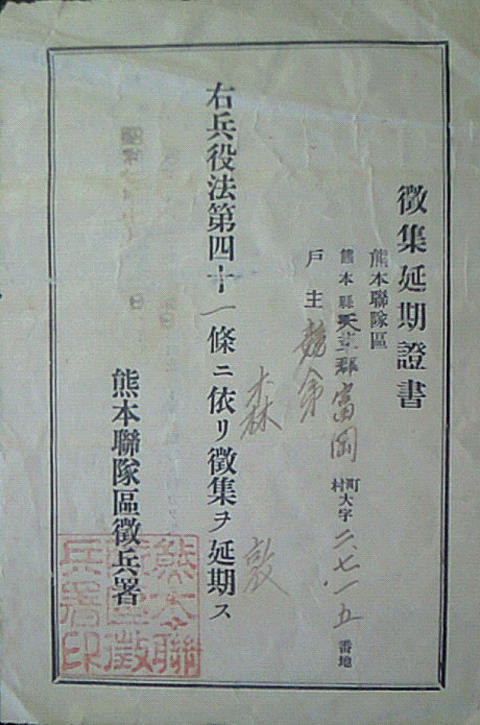 徴集延期證書
熊本聯隊區
熊本縣天草郡富岡町村大字二、七一五番地
戶主 弟
森 敬
右兵役法第四十一條ニ依リ徴集ヲ延期ス
熊本聯隊區徴兵署
熊本聯隊區徴兵署印